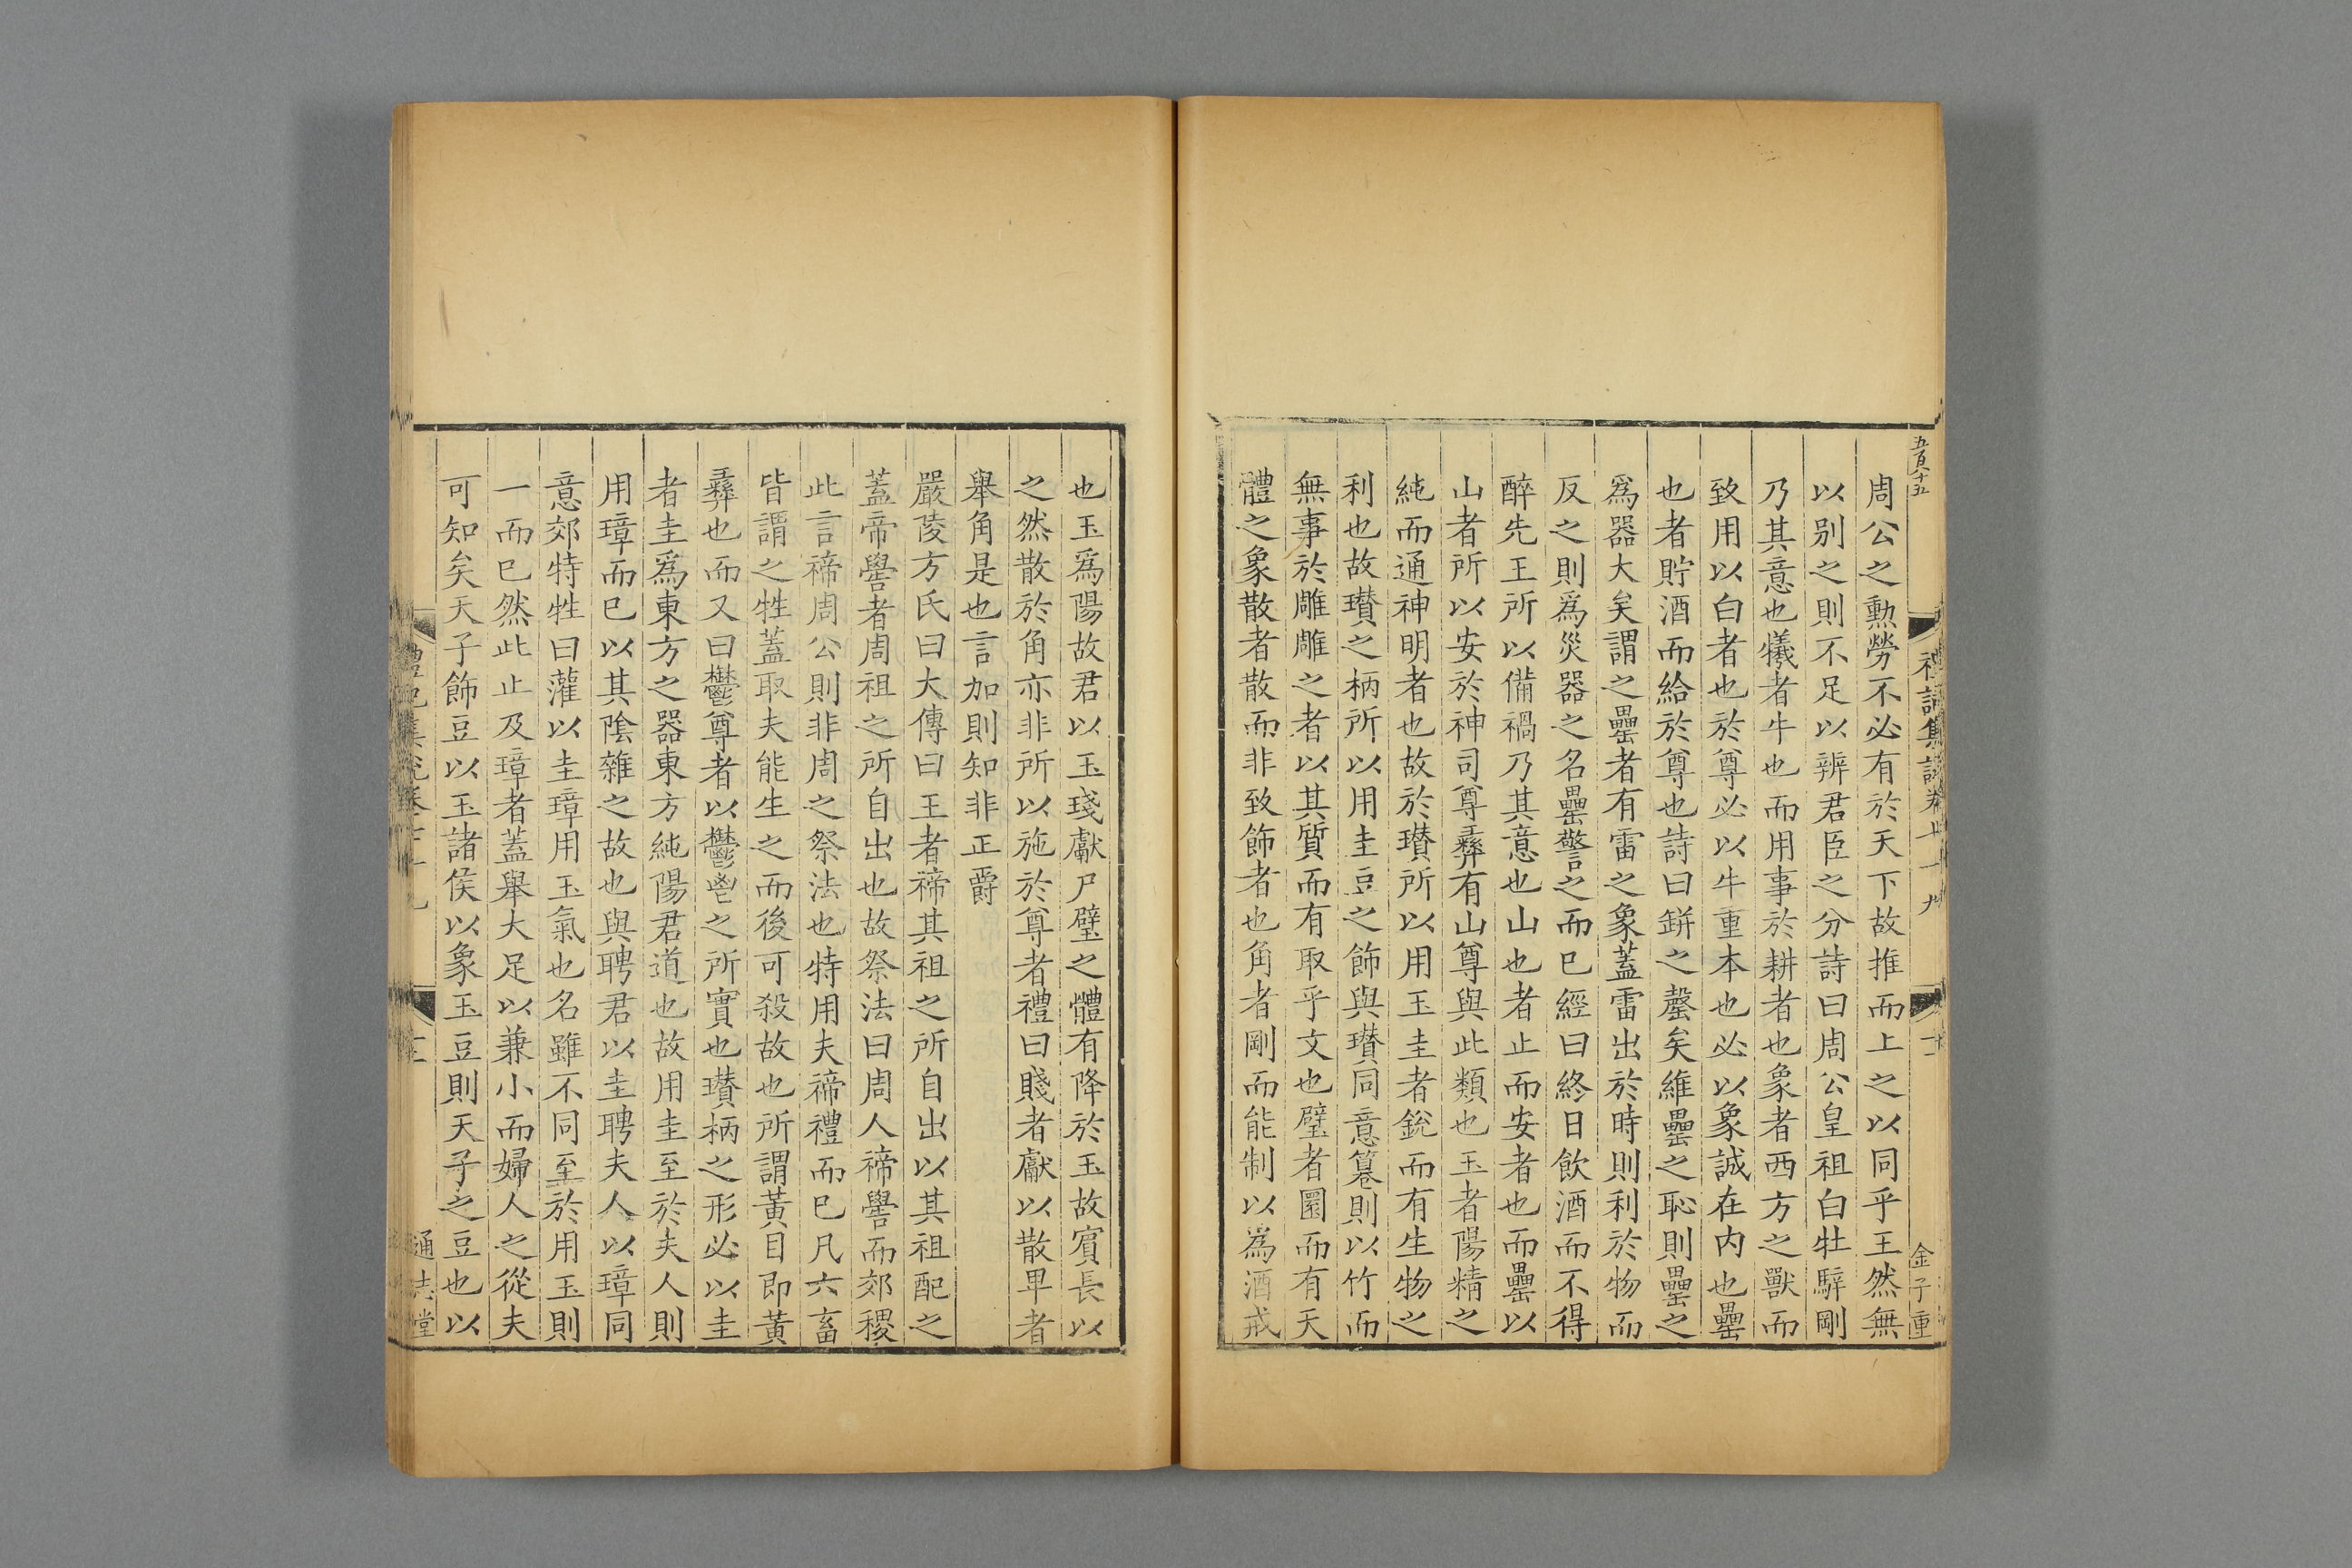 五百十五
禮記集說卷七十九
十二
金子重
周公之勲勞不必有於天下故推而上之以同乎王然無
以别之則不足以辨君臣之分詩曰周公皇祖白牡騂剛
乃其意也犧者牛也而用事於耕者也象者西方之獸而
致用以白者也於尊必以牛重本也必以象誠在内也罍
也者貯酒而給於尊也詩曰缾之罄矣維罍之恥則罍之
爲器大矣謂之罍者有雷之象蓋雷出於時則利於物而
反之則爲災器之名罍警之而已經曰終日飲酒而不得
醉先王所以備禍乃其意也山也者止而安者也而罍以
山者所以安於神司尊彞有山尊與此類也玉者陽精之
純而通神明者也故於瓉所以用玉圭者銳而有生物之
利也故瓉之柄所以用圭豆之飾與瓉同意篹則以竹而
無事於雕雕之者以其質而有取乎文也璧者圜而有天
體之象散者散而非致飾者也角者剛而能制以爲酒戒
也玉爲陽故君以玉琖獻尸璧之體有降於玉故賔長以
之然散於角亦非所以施於尊者禮曰賤者獻以散卑者
舉角是也言加則知非正爵
嚴陵方氏曰大傳曰王者禘其祖之所自出以其祖配之
蓋帝嚳者周祖之所自出也故祭法曰周人禘嚳而郊稷
此言禘周公則非周之祭法也特用夫禘禮而已凡六畜
皆謂之牲蓋取夫能生之而後可殺故也所謂黃目即黃
彞也而又曰鬱尊者以鬱鬯之所實也瓉柄之形必以圭
者圭爲東方之器東方純陽君道也故用圭至於夫人則
用璋而已以其陰雜之故也與聘君以圭聘夫人以璋同
意郊特牲曰灌以圭璋用玉氣也名雖不同至於用玉則
一而已然此止及璋者蓋舉大足以兼小而婦人之從夫
可知矣天子飾豆以玉諸侯以象玉豆則天子之豆也以
禮記集說卷七十九
通志堂